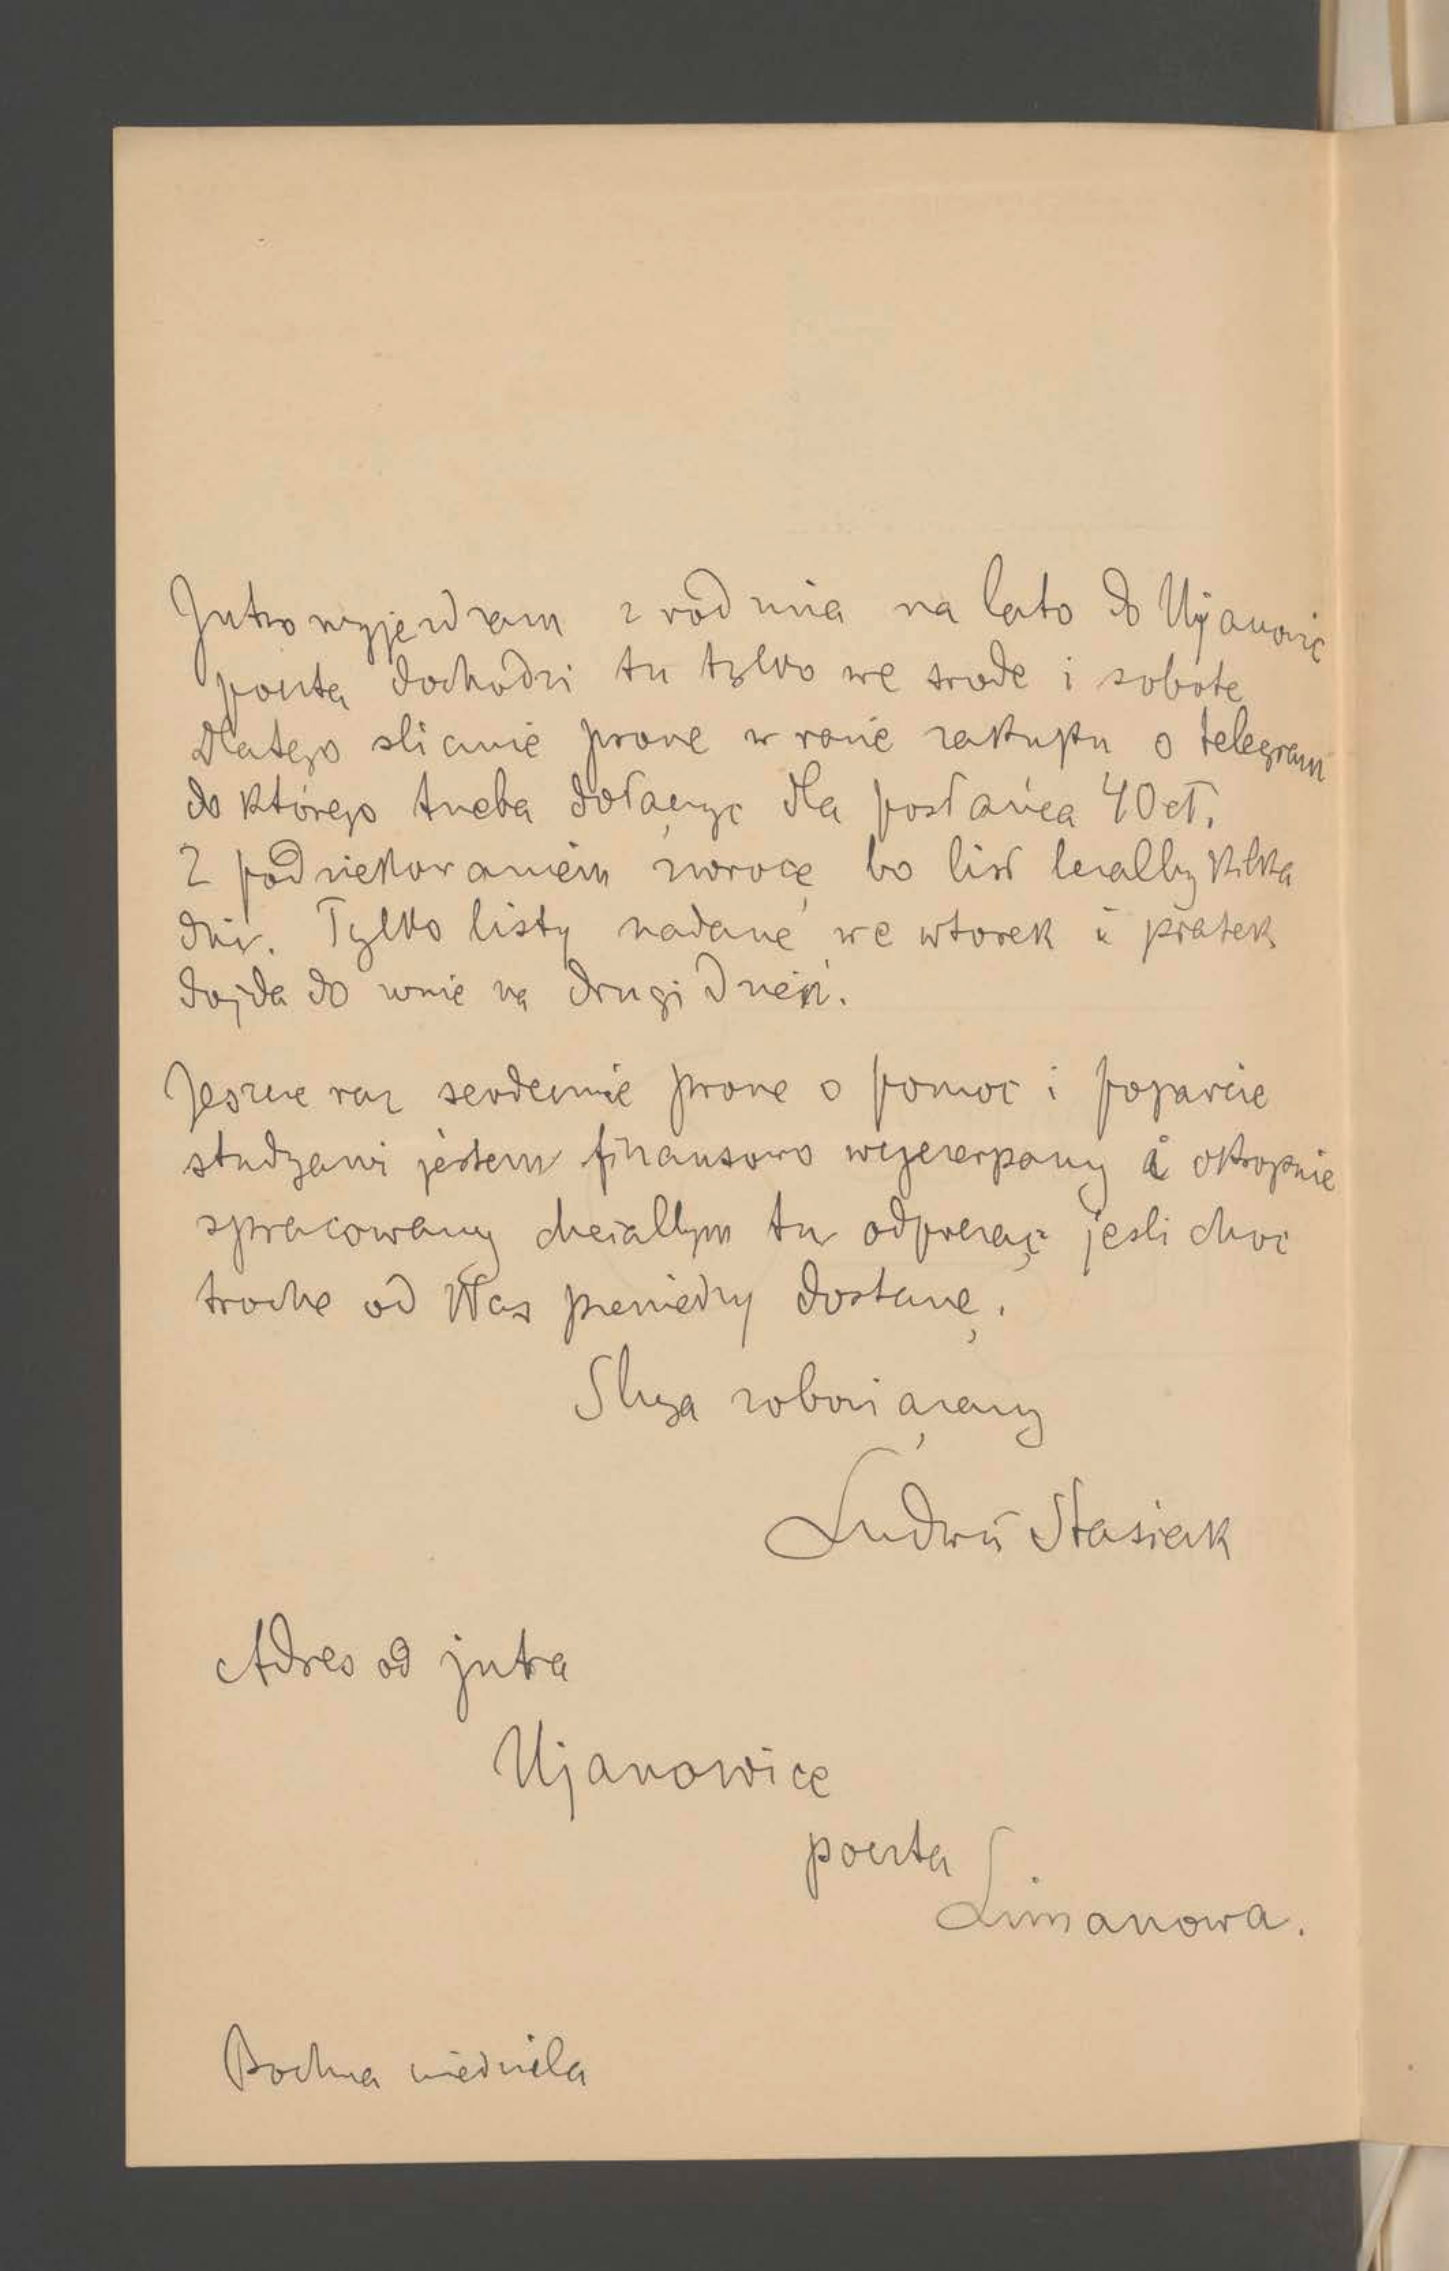 Jutro wyjeżdżam z rodziną na lato do Ujanowic
poczta dochodzi tu tylko we środę i sobotę
Dlatego ślicznie proszę w razie zakupu o telegram
do którego trzeba dołączyć dla posłańca 40 ct.
Z podziękowaniem zwrócę bo list leżałby kilka
dni. Tylko listy nadane we wtorek i piątek
dojdą do mnie na drugi dzień.
Jeszcze raz serdecznie proszę o pomoc i poparcie
studyami jestem finansowo wyczerpany i okropnie
spracowany chciałbym tu odpocząć jeśli choć
trochę od Was pieniędzy dostanę.
Sługa zobowiązany
Ludwik Stasiak
Adres od jutra
Ujanowice
poczta
Limanowa.
Bochnia niedziela